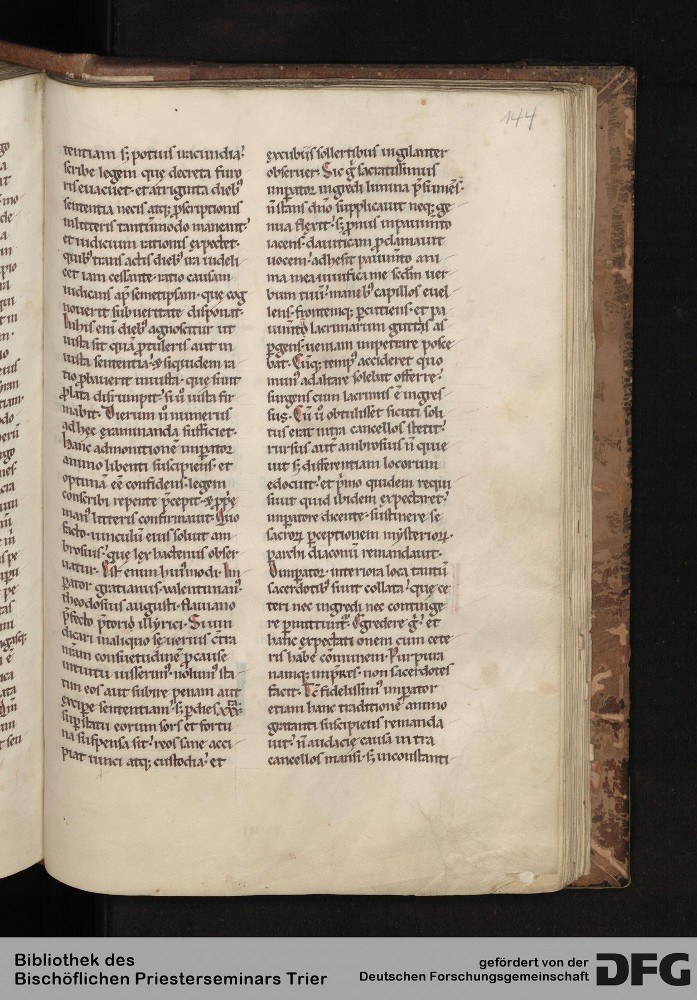 144
tentiam s; potius iracundia?
scribe legem que decreta furo
ris euacuet· et xxx triginta dieb;
sententia necis atq; pscriptionis
in litteris tantummodo maneant·
et iudicium rationis expectet·
quib; transactis dieb; ira uideli
cet iam cessante· ratio causam
iudicans apd semetipsam· que cog
nouerit sub ueritate disponat·
In his enim dieb; agnoscitur ut
iusta sit que ptuleris aut in
iusta sententia· & siquidem ra
tio pbauerit iniusta· que sunt
plata disrumpit· si u iusta fir
mabit· Dierum u numerus
ad hec examinanda sufficiet·
Hanc admonitione imperator
animo libenti suscipiens· et
optimam ee confidens· legem
conscribi repente pcepit· & pprie
manus litteris confirmauit· Quo
facto· uinculum eius soluit am
brosius· que lex hactenus obser
uatur· Est enim huiusmodi· Im
perator gratianus· ualentinianus·
theodosius augusti· flauiano
pfecto ptorio illyrici· Si uin
dicari in aliquo seuerius contra
nram consuetudine p cause
intuitu iusserimus· nolumus sta
tim eos aut subire penam aut
excipe sententiam· s; p dies xxx·
sup statu eorum sors et fortu
na suspensa sit· reos sane acci
piat uinci atq; custodia· et
excubiis sollertibus uigilanter
obseruer· Sic g sacratissimus
imperator ingredi limina psumens·
n stans dno supplicauit neq; ge
nua flexit· s; pnus in pauimto
iacens· dauiticam pclamauit
uocem· adhesit pauimto ani
ma mea uiuifica me scdm uer
bum tuu· manib; capillos euel
lens· frontemq; pcutiens· et pa
uimto lacrimarum guttis as
pgens· ueniam impetrare posce
bat· Cumq; tempus accideret quo
munus ad altare solebat offerre·
surgens cum lacrimis e ingres
sus· Cu u obtulisset sicuti soli
tus erat intra cancellos stetit·
rursus aut ambrosius n quie
uit s; differentiam locorum
edocuit· et pmo quidem requi
siuit quid ibidem expectaret·
imperatore dicente· sustinere se
sacrorum pceptionem mysteriorum·
p archi diaconu remandauit·
O imperator· interiora loca tantu
sacerdotib; sunt collata· que ce
teri nec ingredi nec continge
re pmittuntur· Egredere g· et
hanc expectationem cum cete
ris habe comunem· Purpura
namq; impres· non sacerdotes
facit· Tc fidelissimus imperator
etiam hanc traditione animo
gratanti suscipiens remanda
uit· n audacie causa intra
cancellos mansi· s; in constanti
Bibliothek des
Bischöflichen Priesterseminars Trier
gefördert von der
Deutschen Forschungsgemeinschaft
DFG